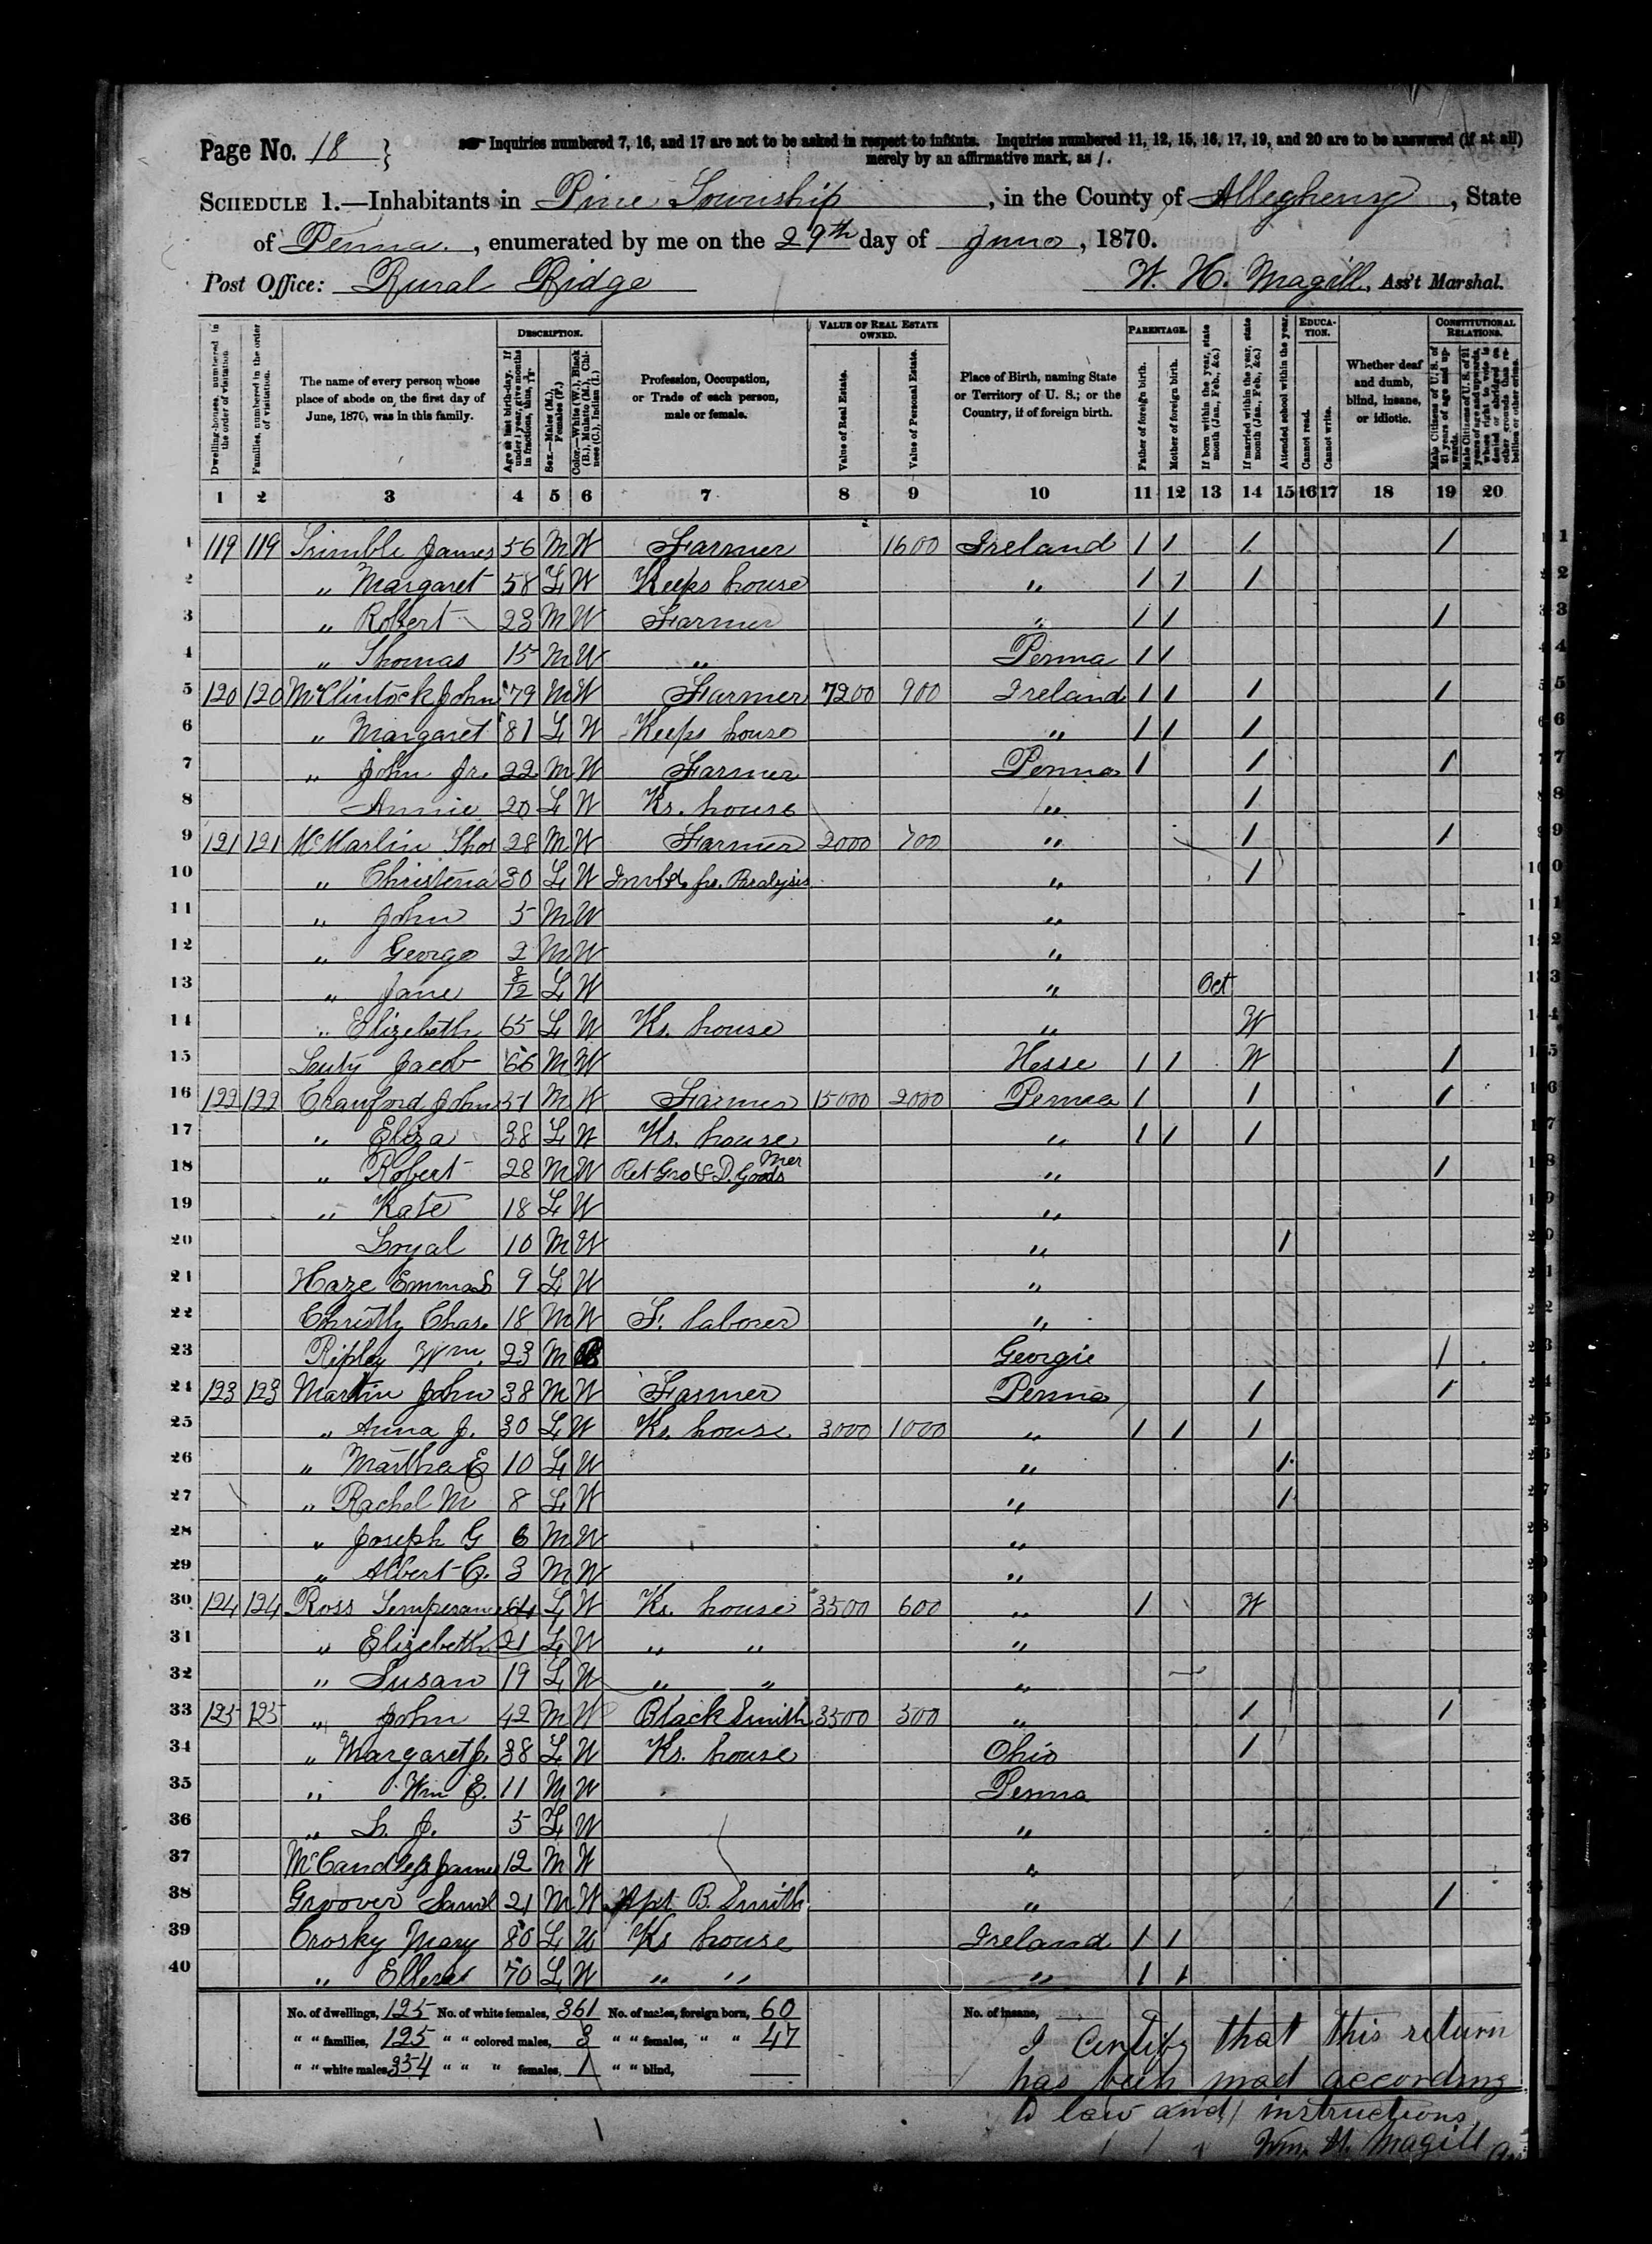 Page No. 18 }
Inquiries numbered 7, 16, and 17 are not to be asked in respect to infants. Inquiries numbered 11, 12, 15, 16, 17, 19, and 20 are to be answered (if at all)
merely by an affirmative mark, as /.
SCHEDULE 1.—Inhabitants in Pine Township, in the County of Allegheny, State
of Penna., enumerated by me on the 29th day of June, 1870.
Post Office: Rural Ridge W. H. Magill, Ass't Marshal.
Dwelling-houses, numbered in the order of visitation.
Families, numbered in the order of visitation.
The name of every person whose place of abode on the first day of June, 1870, was in this family.
DESCRIPTION.
Age at last birth-day. If under 1 year, give months in fractions, thus, 
Sex.—Males (M.), Females (F.)
Color.—White (W.), Black (B.), Mulatto (M.), Chinese (C.), Indian (I.)
Profession, Occupation, or Trade of each person, male or female.
VALUE OF REAL ESTATE OWNED.
Value of Real Estate.
Value of Personal Estate.
Place of Birth, naming State or Territory of U. S.; or the Country, if of foreign birth.
PARENTAGE.
Father of foreign birth.
Mother of foreign birth.
If born within the year, state month (Jan., Feb., &c.)
If married within the year, state month (Jan., Feb., &c.)
Attended school within the year.
EDUCATION.
Cannot read.
Cannot write.
Whether deaf and dumb, blind, insane, or idiotic.
CONSTITUTIONAL RELATIONS.
Male Citizens of U. S. of 21 years of age and upwards.
Male Citizens of U. S. of 21 years of age and upwards, whose right to vote is denied or abridged on other grounds than rebellion or other crime.
1 2 3 4 5 6 7 8 9 10 11 12 13 14 15 16 17 18 19 20
1 119 119 Trimble James 56 M W Farmer 1600 Ireland / / / / 1
2 " Margaret 58 F W Keeps house " / / / 2
3 " Robert 23 M W Farmer " / / / 3
4 " Thomas 15 M W " Penna / / 4
5 120 120 McClintock John 79 M W Farmer 7200 900 Ireland / / / / 5
6 " Margaret 81 F W Keeps house " / / / 6
7 " John Jr. 22 M W Farmer Penna / / / 7
8 Annie 20 F W Ks. house " / 8
9 121 121 McMarlin Thos 28 M W Farmer 2000 700 " / / 9
10 " Christina 30 F W fr. Paralysis " / 10
11 " John 5 M W " 11
12 " George 2 M W " 12
13 " Jane 8/12 F W " Oct 13
14 " Elizebeth 65 F W Ks. house " W 14
15 Jacob 66 M W Hesse / / W / 15
16 122 122 Crawford John 51 M W Farmer 15000 2000 Penna / / / 16
17 " Eliza 38 F W Ks. house " / / / 17
18 " Robert 28 M W Ret Gro & D. Goods Mer " / 18
19 " Kate 18 F W " 19
20 Loyal 10 M W " / 20
21 Haze Emma S 9 F W " 21
22 Christly Chas. 18 M W F. laborer " 22
23 Ripley Wm. 23 M B Georgie / 23
24 123 123 Martin John 38 M W Farmer Penna / / 24
25 " Anna J. 30 F W Ks. house 3000 1000 " / / / 25
26 " Martha E 10 F W " / 26
27 " Rachel M 8 F W " / 27
28 " Joseph G 6 M W " 28
29 " Albert C. 3 M W " 29
30 124 124 Ross Temperance 64 F W Ks. house 3500 600 " / W 30
31 " Elizebeth 21 F W " " " 31
32 " Susan 19 F W " " " 32
33 125 125 " John 42 M W Black Smith 3500 500 " / / 33
34 " Margaret J. 38 F W Ks. house Ohio / 34
35 " Wm E. 11 M W Penna 35
36 " L. J. 5 F W " 36
37 McCandless James 12 M W " 37
38 Groover Saml 21 M W Apt B. Smith " / 38
39 Crosky Mary 80 F W Ks house Ireland / / 39
40 " Ellen 70 F W " " " / / 40
No. of dwellings, 125 No. of white females, 361 No. of males, foreign born, 60 No. of insane,
" " families, 125 " " colored males, 3 " " females, " " 47
" " white males, 354 " " " females, 1 " " blind,
I certify that this return
has been mad according
to law and instructions
Wm. H. Magill